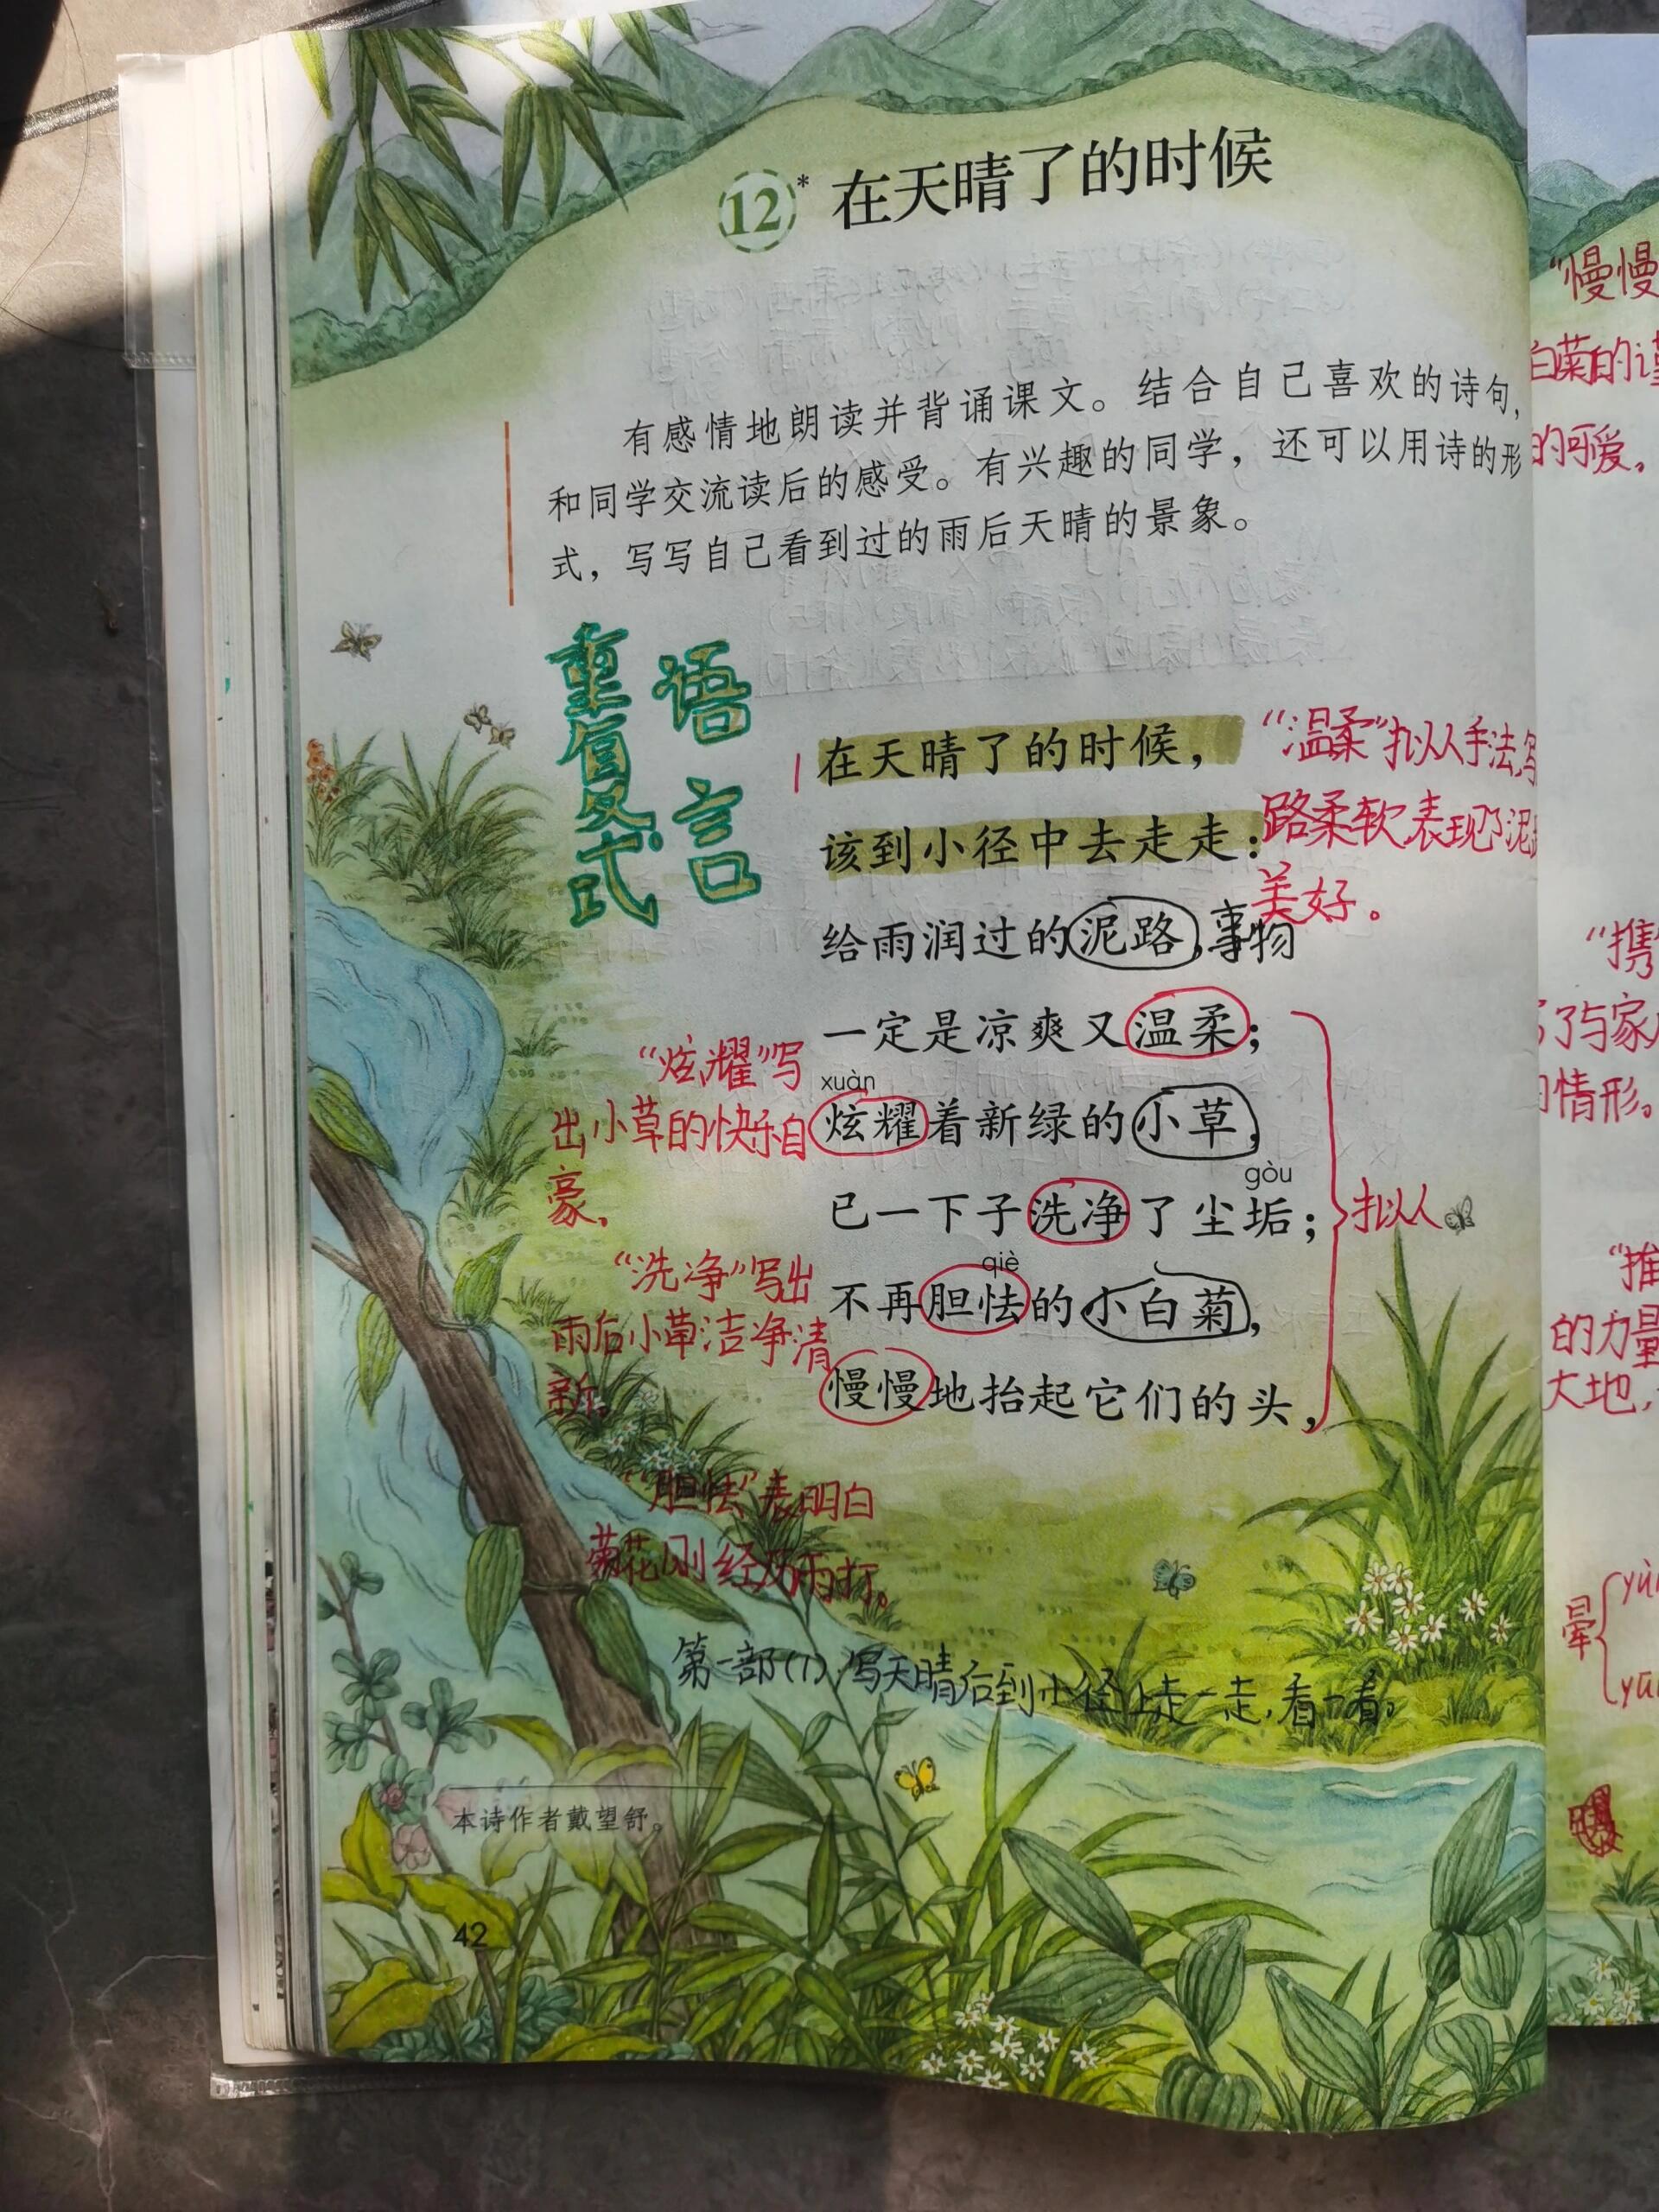 12* 在天晴了的时候
有感情地朗读并背诵课文。结合自己喜欢的诗句，
和同学交流读后的感受。有兴趣的同学，还可以用诗的形
式，写写自己看到过的雨后天晴的景象。
语言
重复式
在天晴了的时候，
该到小径中去走走：
给雨润过的泥路，事物
一定是凉爽又温柔；
xuàn
炫耀着新绿的小草，
gòu
已一下子洗净了尘垢；
qiè
不再胆怯的小白菊，
慢慢地抬起它们的头，
拟人
“温柔”拟人手法，写
路柔软表现了泥
美好。
“炫耀”写
出小草的快乐自
豪，
“洗净”写出
雨后小草洁净清
新。
“胆怯”表明白
菊花刚经历雨打。
第一部(1)：写天晴后到小径上走一走，看一看。
本诗作者戴望舒。
42
“慢慢
白菜的
的可爱。
“携
了与家
情形。
“推
的力量
大地，
晕